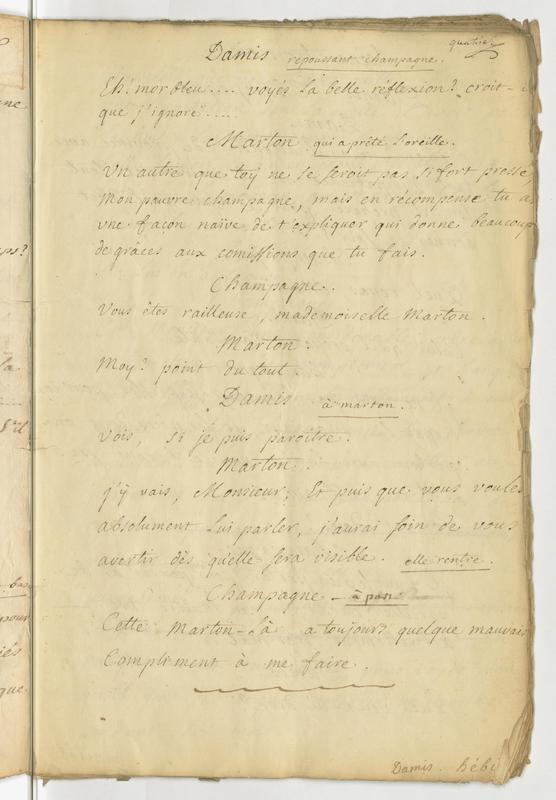 quatre
Damis repoussant champagne.
Eh! morbleu .... voyés la belle réflexion? croit-
que j'ignore ....
Marton qui a prêté l'oreille.
Un autre que toy ne se seroit pas si fort pressé,
mon pauvre champagne, mais en récompense tu as
une façon naïve de t'expliquer qui donne beaucoup
de grâces aux comissions que tu fais.
Champagne.
Vous êtes railleuse, mademoiselle Marton.
Marton.
Moy? point du tout.
Damis à marton.
Vois, si je puis paroître.
Marton.
j'y vais, Monsieur; Et puis que vous voulés
absolument lui parler, j'aurai soin de vous
avertir dès qu'elle sera visible. elle rentre.
Champagne - à part
Cette Marton-là a toujours quelque mauvais
Compliment à me faire.
Damis. hébé